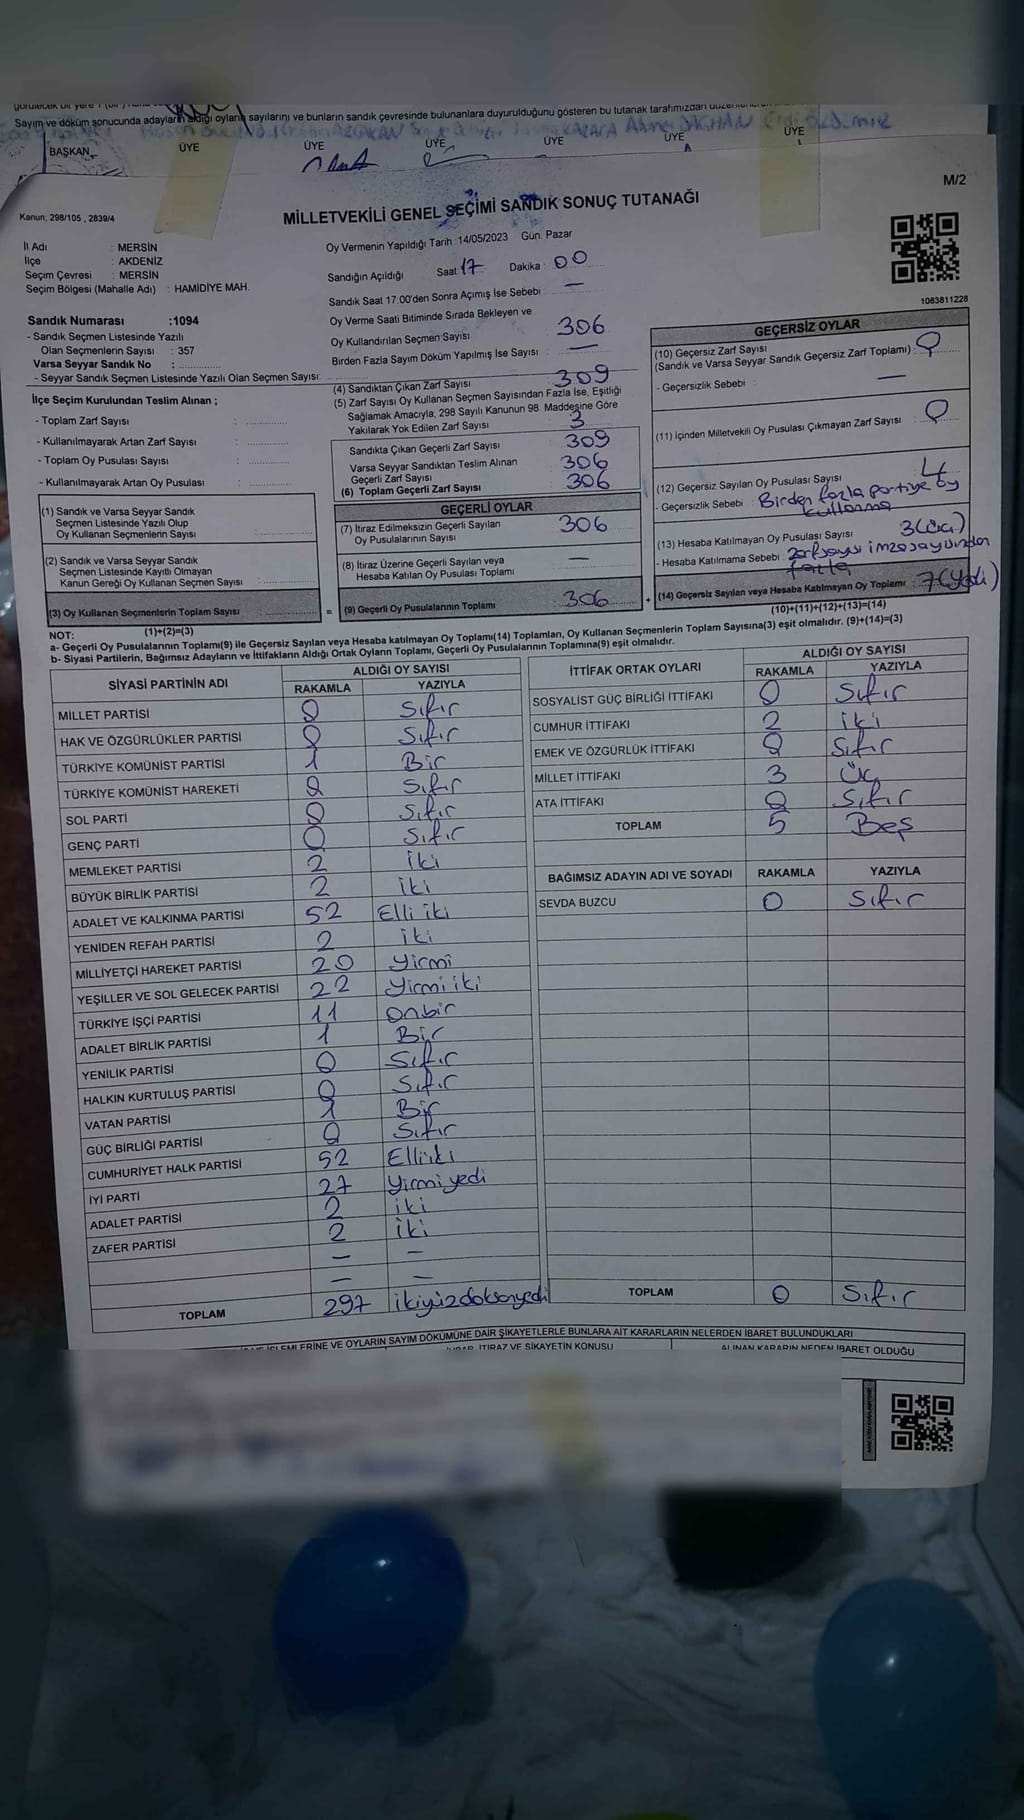 Sayım ve döküm sonucunda adayların aldığı oyların sayılarını ve bunların sandık çevresinde bulunanlara duyurulduğunu gösteren bu tutanak tarafımızdan
BAŞKAN ÜYE ÜYE ÜYE ÜYE ÜYE ÜYE
M/2
Kanun; 298/105 , 2839/4
MİLLETVEKİLİ GENEL SEÇİMİ SANDIK SONUÇ TUTANAĞI
İl Adı : MERSİN
İlçe : AKDENİZ
Seçim Çevresi : MERSİN
Seçim Bölgesi (Mahalle Adı) : HAMİDİYE MAH.
Sandık Numarası :1094
- Sandık Seçmen Listesinde Yazılı
Olan Seçmenlerin Sayısı : 357
Varsa Seyyar Sandık No :
- Seyyar Sandık Seçmen Listesinde Yazılı Olan Seçmen Sayısı:
İlçe Seçim Kurulundan Teslim Alınan ;
- Toplam Zarf Sayısı :
- Kullanılmayarak Artan Zarf Sayısı :
- Toplam Oy Pusulası Sayısı :
- Kullanılmayarak Artan Oy Pusulası :
(1) Sandık ve Varsa Seyyar Sandık
Seçmen Listesinde Yazılı Olup
Oy Kullanan Seçmenlerin Sayısı :
(2) Sandık ve Varsa Seyyar Sandık
Seçmen Listesinde Kayıtlı Olmayan
Kanun Gereği Oy Kullanan Seçmen Sayısı :
(3) Oy Kullanan Seçmenlerin Toplam Sayısı :
(1)+(2)=(3)
Oy Vermenin Yapıldığı Tarih : 14/05/2023 Gün: Pazar
Sandığın Açıldığı Saat: 17 Dakika : 00
Sandık Saat 17.00'den Sonra Açımış İse Sebebi : —
Oy Verme Saati Bitiminde Sırada Bekleyen ve
Oy Kullandırılan Seçmen Sayısı : 306
Birden Fazla Sayım Döküm Yapılmış İse Sayısı : —
(4) Sandıktan Çıkan Zarf Sayısı : 309
(5) Zarf Sayısı Oy Kullanan Seçmen Sayısından Fazla İse, Eşitliği
Sağlamak Amacıyla, 298 Sayılı Kanunun 98. Maddesine Göre
Yakılarak Yok Edilen Zarf Sayısı : 3
Sandıkta Çıkan Geçerli Zarf Sayısı : 309
Varsa Seyyar Sandıktan Teslim Alınan
Geçerli Zarf Sayısı : 306
(6) Toplam Geçerli Zarf Sayısı : 306
GEÇERLİ OYLAR
(7) İtiraz Edilmeksizin Geçerli Sayılan
Oy Pusulalarının Sayısı : 306
(8) İtiraz Üzerine Geçerli Sayılan veya
Hesaba Katılan Oy Pusulası Toplamı : —
= (9) Geçerli Oy Pusulalarının Toplamı : 306 +
1083811228
GEÇERSİZ OYLAR
(10) Geçersiz Zarf Sayısı
(Sandık ve Varsa Seyyar Sandık Geçersiz Zarf Toplamı) : 0
- Geçersizlik Sebebi : —
(11) İçinden Milletvekili Oy Pusulası Çıkmayan Zarf Sayısı : 0
(12) Geçersiz Sayılan Oy Pusulası Sayısı : 4
- Geçersizlik Sebebi : Birden fazla partiye oy
kullanma
(13) Hesaba Katılmayan Oy Pusulası Sayısı : 3(üç)
- Hesaba Katılmama Sebebi : zarf sayısı imza sayısından
fazla
(14) Geçersiz Sayılan veya Hesaba Katılmayan Oy Toplamı : 7(Yedi)
(10)+(11)+(12)+(13)=(14)
NOT:
a- Geçerli Oy Pusulalarının Toplamı(9) ile Geçersiz Sayılan veya Hesaba katılmayan Oy Toplamı(14) Toplamları, Oy Kullanan Seçmenlerin Toplam Sayısına(3) eşit olmalıdır. (9)+(14)=(3)
b- Siyasi Partilerin, Bağımsız Adayların ve İttifakların Aldığı Ortak Oyların Toplamı, Geçerli Oy Pusulalarının Toplamına(9) eşit olmalıdır.
SİYASİ PARTİNİN ADI ALDIĞI OY SAYISI
RAKAMLA YAZIYLA
MİLLET PARTİSİ 0 Sıfır
HAK VE ÖZGÜRLÜKLER PARTİSİ 0 Sıfır
TÜRKİYE KOMÜNİST PARTİSİ 1 Bir
TÜRKİYE KOMÜNİST HAREKETİ 0 Sıfır
SOL PARTİ 0 Sıfır
GENÇ PARTİ 0 Sıfır
MEMLEKET PARTİSİ 2 iki
BÜYÜK BİRLİK PARTİSİ 2 iki
ADALET VE KALKINMA PARTİSİ 52 Elli iki
YENİDEN REFAH PARTİSİ 2 iki
MİLLİYETÇİ HAREKET PARTİSİ 20 Yirmi
YEŞİLLER VE SOL GELECEK PARTİSİ 22 Yirmi iki
TÜRKİYE İŞÇİ PARTİSİ 11 onbir
ADALET BİRLİK PARTİSİ 1 Bir
YENİLİK PARTİSİ 0 Sıfır
HALKIN KURTULUŞ PARTİSİ 0 Sıfır
VATAN PARTİSİ 1 Bir
GÜÇ BİRLİĞİ PARTİSİ 0 Sıfır
CUMHURİYET HALK PARTİSİ 52 Elliiki
İYİ PARTİ 27 Yirmiyedi
ADALET PARTİSİ 2 iki
ZAFER PARTİSİ 2 iki
— —
— —
TOPLAM 297 ikiyüzdoksanyedi
İTTİFAK ORTAK OYLARI ALDIĞI OY SAYISI
RAKAMLA YAZIYLA
SOSYALİST GÜÇ BİRLİĞİ İTTİFAKI 0 Sıfır
CUMHUR İTTİFAKI 2 iki
EMEK VE ÖZGÜRLÜK İTTİFAKI 0 Sıfır
MİLLET İTTİFAKI 3 Üç
ATA İTTİFAKI 0 Sıfır
TOPLAM 5 Beş
BAĞIMSIZ ADAYIN ADI VE SOYADI RAKAMLA YAZIYLA
SEVDA BUZCU 0 Sıfır
TOPLAM 0 Sıfır
İŞLEMLERİNE VE OYLARIN SAYIM DÖKÜMÜNE DAİR ŞİKAYETLERLE BUNLARA AİT KARARLARIN NELERDEN İBARET BULUNDUKLARI
İTİRAZ VE ŞİKAYETİN KONUSU ALINAN KARARIN NEDEN İBARET OLDUĞU